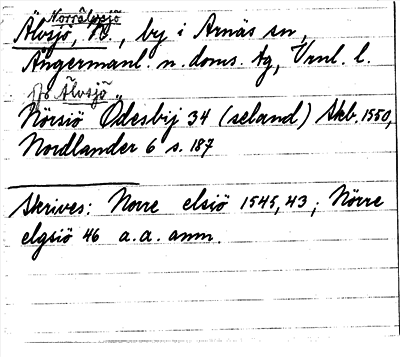 Norrälgsjö
Älvsjö, N., by i Arnäs sn,
Ångermanl. n. doms. tg, Vrnl. l.
jfr Älvsjö
Nörsiö Ödesbij 34 (seland) Skb. 1550,
Nordlander 6 s. 187
Skrives: Norre elsiö 1545, 43; Nörre
elgsiö 46 a.a. anm.